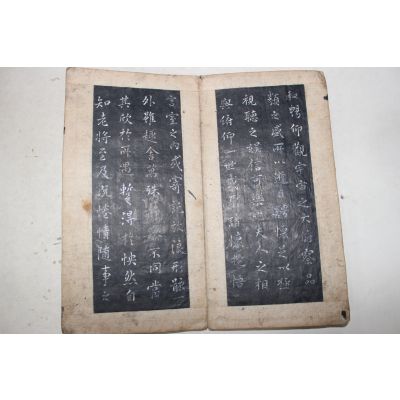 和暢仰觀宇宙之大俯察品
類之盛所以遊目騁懷足以極
視聽之娛信可樂也夫人之相
與俯仰一世或取諸懷抱悟
言室之內或寄託放浪形骸之
外雖趣舍萬殊不同當
其欣於所遇暫得於怏然自
知老將至及既惓情隨事之